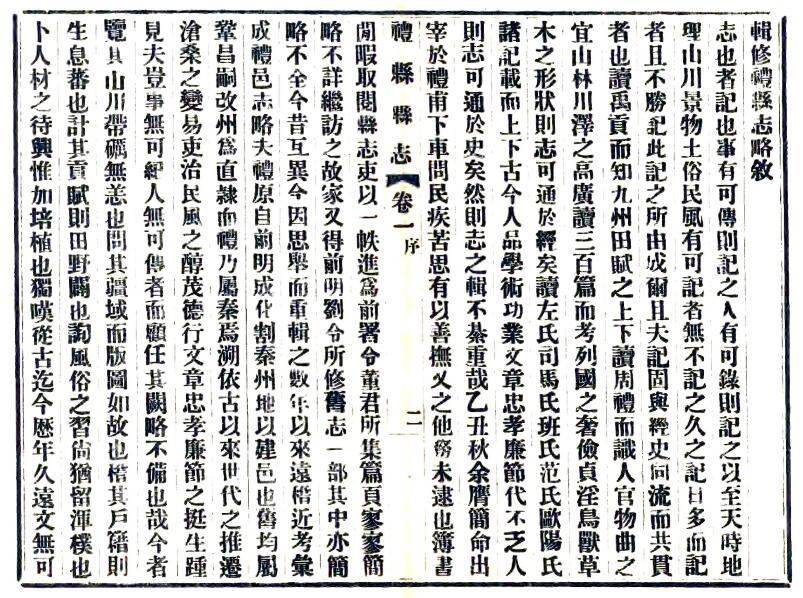 輯修禮縣志略敘
志也者記也事有可傳則記之人有可錄則記之以至天時地
理山川景物土俗民風有可記者無不記之久之記日多而記
者且不勝記此記之所由成爾且夫記固與經史同流而共貫
者也讀禹貢而知九州田賦之上下讀周禮而識人官物曲之
宜山林川澤之高廣讀三百篇而考列國之奢儉貞淫鳥獸草
木之形狀則志可通於經矣讀左氏司馬氏班氏范氏歐陽氏
諸記載而上下古今人品學術功業文章忠孝廉節代不乏人
則志可通於史矣然則志之輯不綦重哉乙丑秋余膺簡命出
宰於禮甫下車問民疾苦思有以善撫乂之他務未逮也簿書
禮縣縣志 卷一 序 二
閒暇取閱縣志吏以一帙進爲前署令董君所集篇頁寥寥簡
略不詳繼訪之故家又得前明劉令所修舊志一部其中亦簡
略不全今昔互異今因思舉而重輯之數年以來遠稽近考彙
成禮邑志略夫禮原自前明成化割秦州地以建邑也舊均屬
鞏昌嗣改州爲直隸而禮乃屬秦焉溯依古以來世代之推遷
滄桑之變易吏治民風之醇茂德行文章忠孝廉節之挺生踵
見夫豈事無可紀人無可傳者而顧任其闕略不備也哉今者
覽其山川帶礪無恙也問其疆域而版圖如故也稽其戶籍則
生息蕃也計其貢賦則田野闢也詢風俗之習尙猶留渾樸也
卜人材之待興惟加培植也獨嘆從古迄今歷年久遠文無可